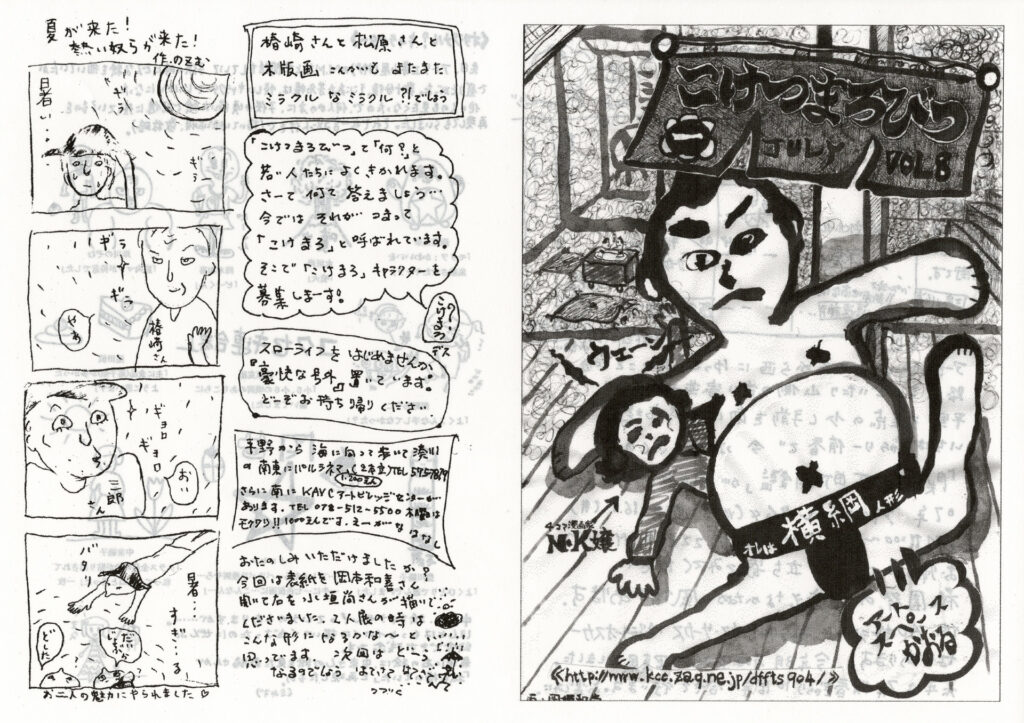 夏が来た!
熱い奴らが来た!
作.のぞむ
暑い…
ギラ
ギラ
ギラ
ギラ
やあ
椿崎さん
ギョロ
ギョロ
おい
三郎さん
バタリ
暑…すぎ…る
だいじょぶか
どした
お二人の魅力にやられました♡
椿崎さんと松原さんと
木版画 こんかいも またまた
ミラクルなミラクル?!でしょう
「こけつまろびつ」って「何?」と
若い人たちに よくきかれます。
さーて 何て 答えましょう…
今では それが つまって
「こけまろ」と 呼ばれています。
そこで「こけまろ」キャラクターを
募集しまーす。
こけまろ
デス
スローライフをはじめませんか
『豪快な号外』置いています。
どーぞお持ち帰りください
平野から 海に向って歩いて 湊川
の南東にパルシネマ(2本立)TEL 575-7879
1,200えん
さらに南に KAVC アートビレッジセンターが
あります。TEL 078-512-5500 木曜は
モクワリ!! 1000えんです。えーがな
ななし
おたのしみいただけましたか?
今回は表紙を岡本和喜さん
開いて右を小垣尚さんが描いて
くださいました。2人展の時は
こんな形になるかな〜と
思っています。次回は どー
なるのでしょう
つづく
こけつまろびつ
JULY
VOL.8
ウェーン
4コマ漫画家
N・K嬢
オレは
横綱
人形
アントン
スーペンス
かおる
《http://www.kcc.zaq.ne.jp/dffts904/》